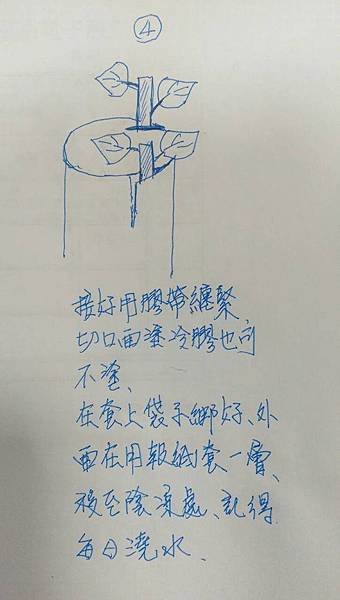 ④
接好用膠帶纏緊、
切口面塗冷膠也可
不塗、
在套上袋子綁好、外
面在用報紙套一層、
移至陰涼處、記得
每日澆水、